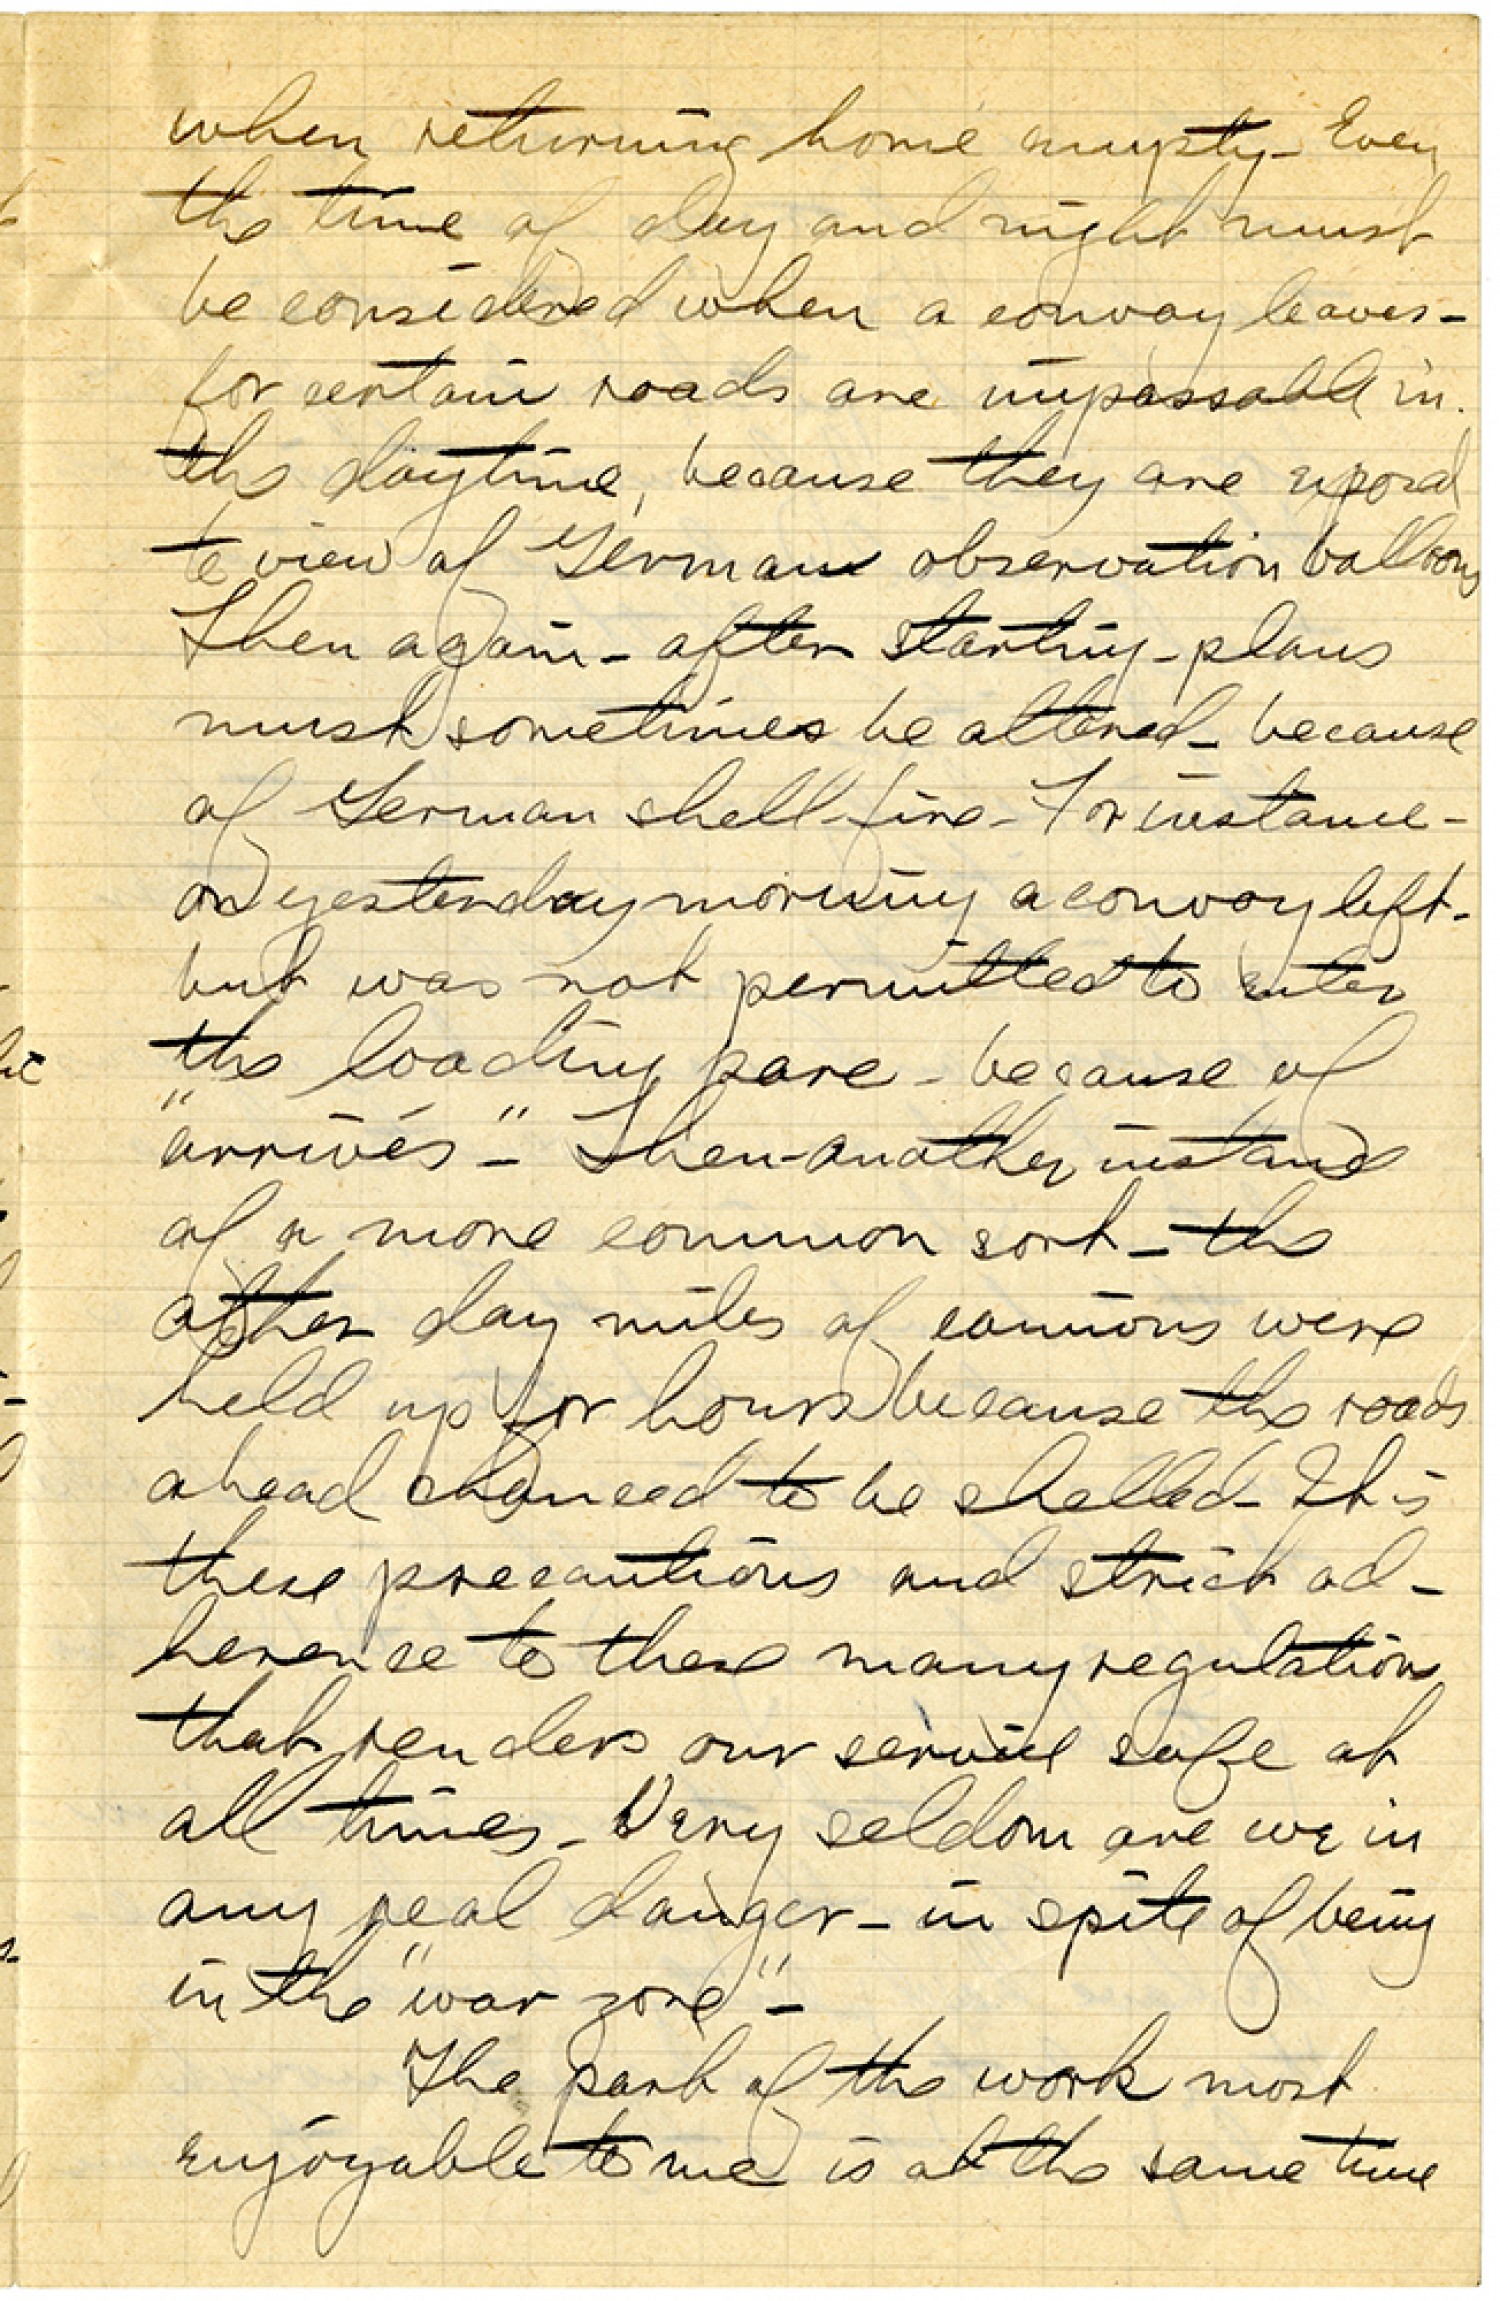 when returning home empty – Even
the time of day and night must
be considered when a convoy leaves –
for certain roads are impassable in
the daytime, because they are exposed
to view of German observation balloons
Then again – after starting – plans
must sometimes be altered – because
of German shell-fire – For instance –
on yesterday morning a convoy left –
but was not permitted to enter
the loading parc – because of
"arrivés" – Then – another instance
of a more common sort – the
other day miles of camions were
held up for hours because the roads
ahead chanced to be shelled – It is
these precautions and strict ad-
herence to these many regulations
that renders our service safe at
all times – Very seldom are we in
any real danger – in spite of being
in the "war zone" –
The part of the work most
enjoyable to me is at the same time